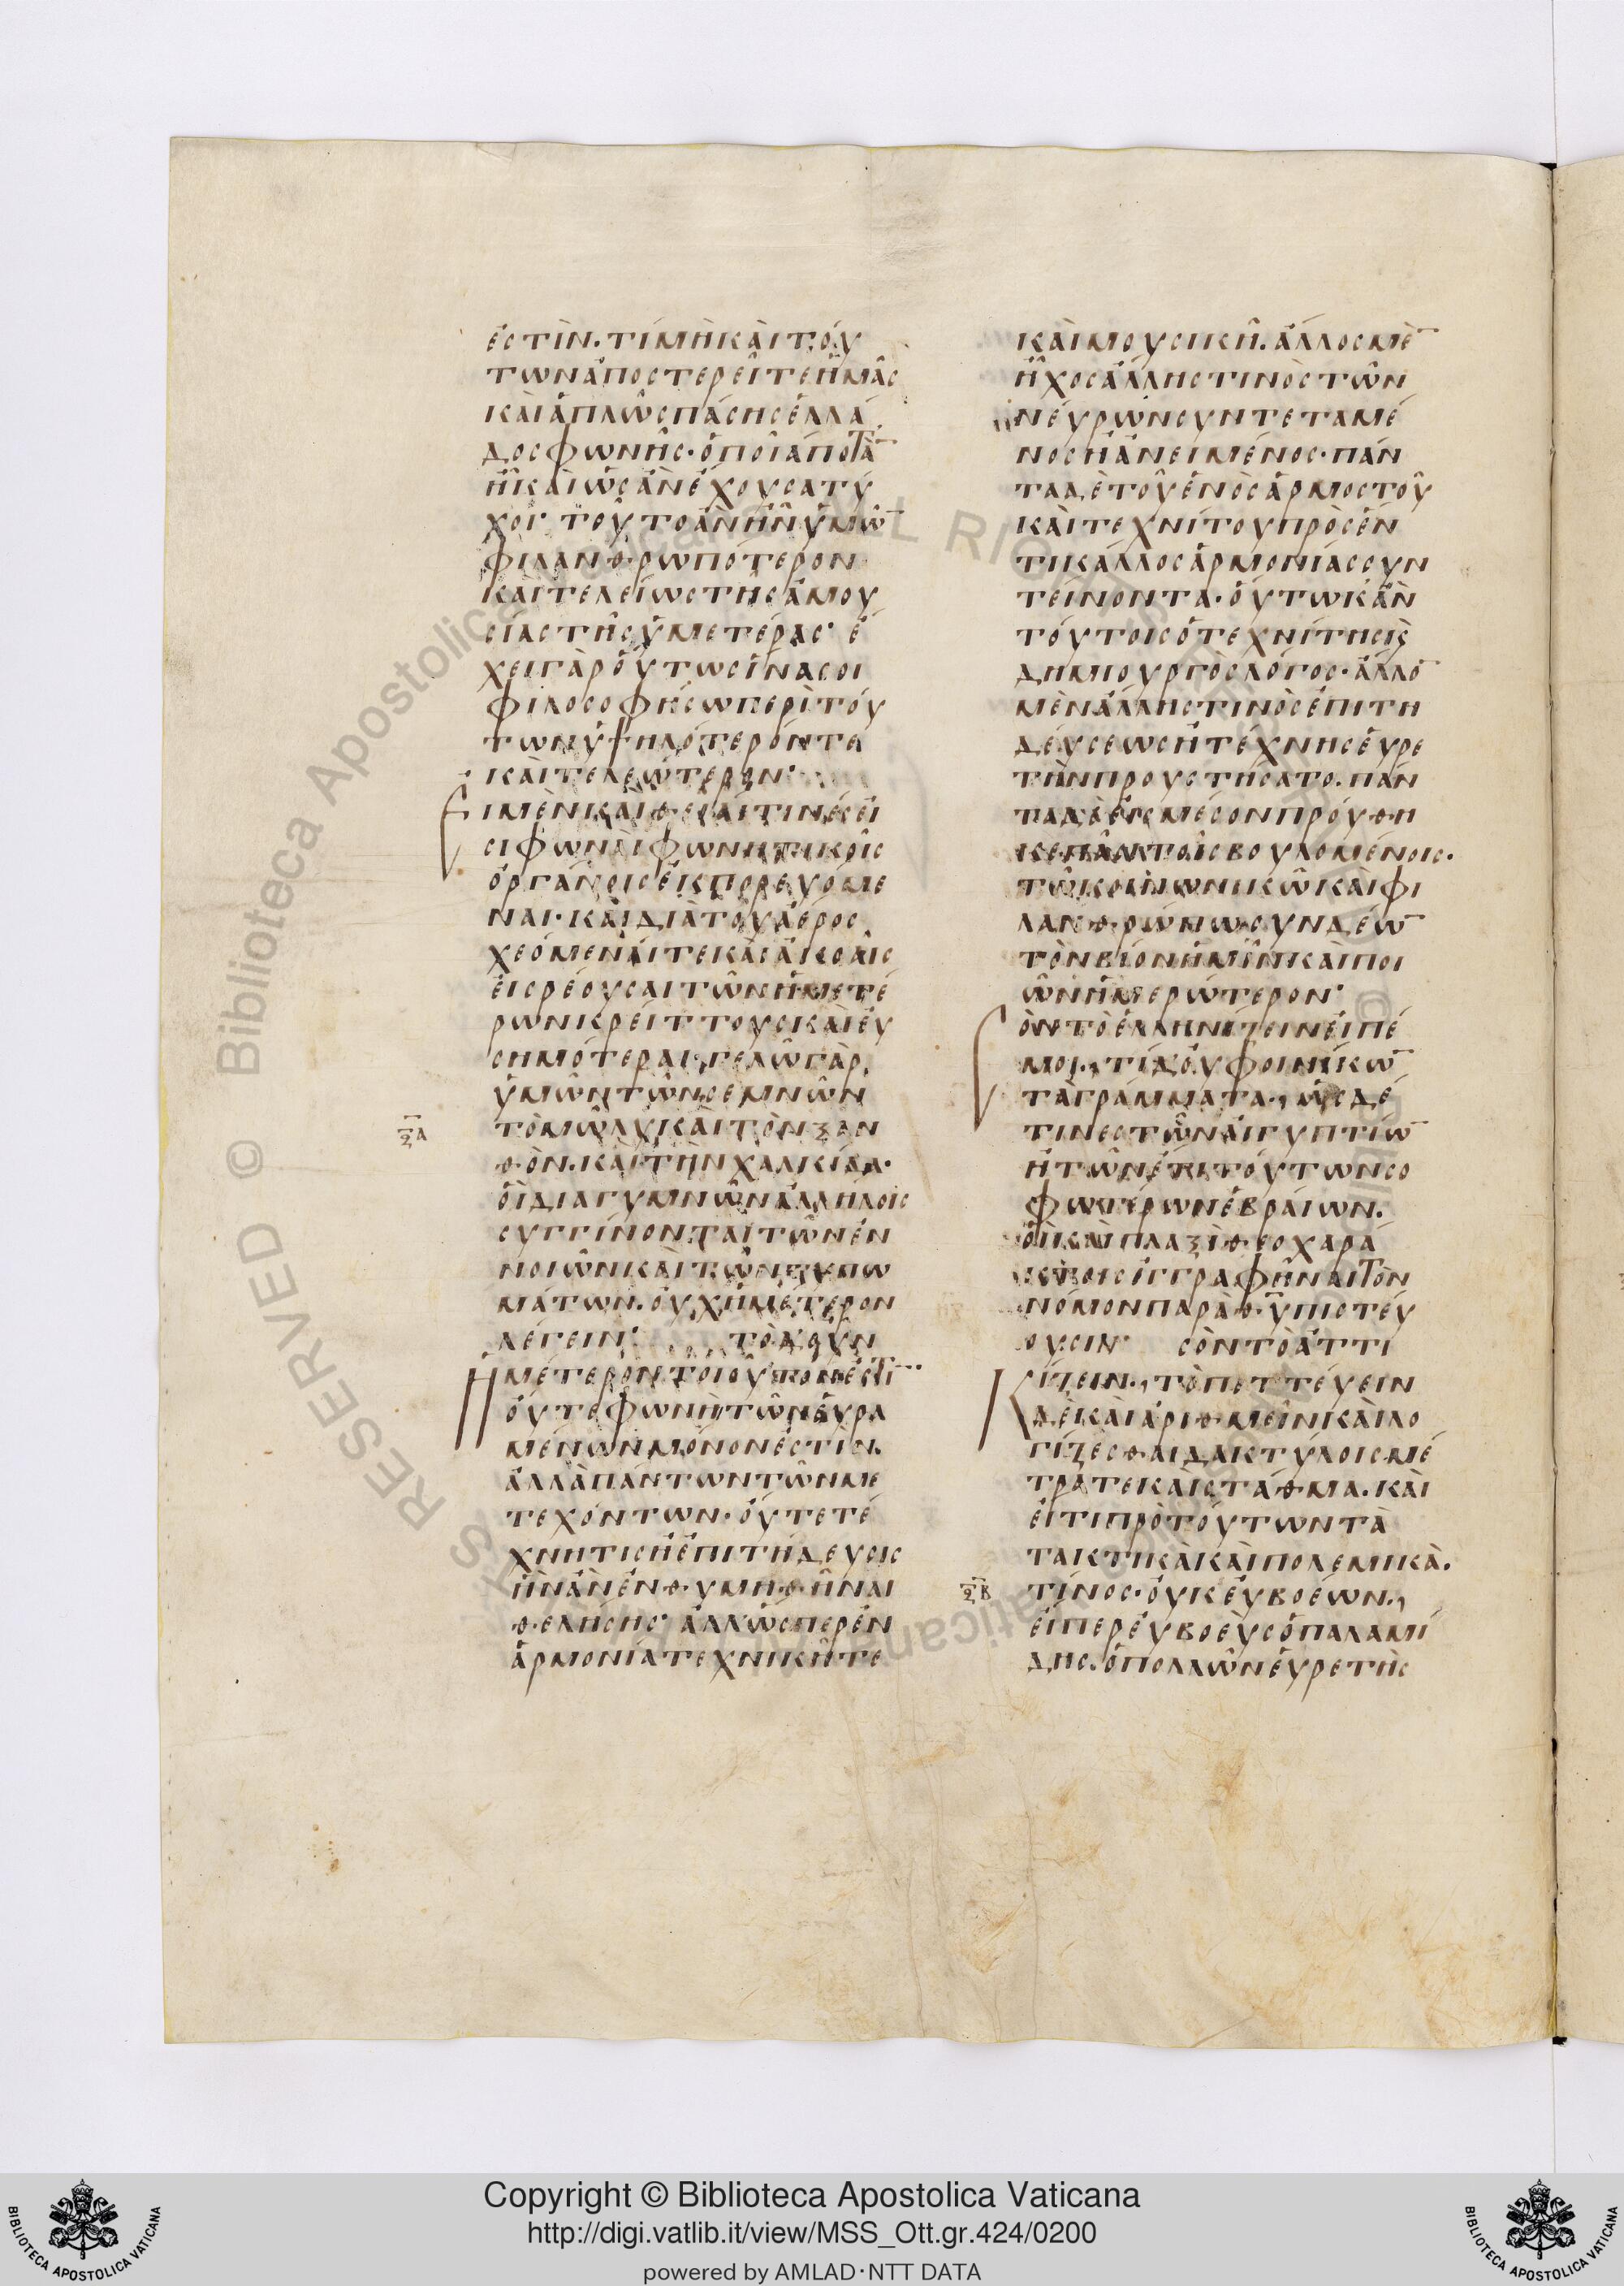 ἐστίν· τί μὴ καὶ τού
των ἀποστερεῖτε ἡμᾶς
καὶ ἁπλῶς πάσης ἑλλά
δος φωνῆς· ὁποῖά ποτ' ἂ̄
ἦ καὶ ὡς ἂν ἔχουσα τύ
χοι· τοῦτο ἂν ἦν ὑμῶ̄
φιλανθρωπότερον
καὶ τελείως τῆς ἀμου
σίας τῆς ὑμετέρας· ἔ
χει γὰρ οὕτως ἵνα σοι
φιλοσοφήσω περὶ τού
των ὑψηλότερόν τε
καὶ τελεώτερον·
Εἰ μὲν καὶ θεῖαί τινές εἰ
σι φωναὶ φωνητικοῖς
ὀργάνοις ἐκπορευόμε
ναι· καὶ διὰ τοῦ ἀέρος
χεόμεναί τε καὶ ἀκοαῖς
εἰσρέουσαι τῶν ἡμετέ
ρων κρείττους καὶ εὐ
σημότεραι, γελῶ γὰρ
ὑμῶν τῶν σεμνῶν
ξα
τὸ μῶλυ καὶ τὸν ξαν
θὸν. καὶ τὴν χαλκίδα·
οἳ διὰ γυμνῶν ἀλλήλοις
συγγίνονται τῶν ἐν
νοιῶν καὶ τῶν τυπω
μάτων. οὐχ ἡμέτερον
λέγειν· τὸ δ' οὖν
Ἡμέτερον τοιοῦτόν ἐστῑ
οὔτε φωνὴ τῶν εὑρα
μένων μόνον ἐστίν.
ἀλλὰ πάντων τῶν με
τεχόντων· οὔτε τέ
χνη τις ἢ ἐπιτήδευσις
ἣν ἂν ἐνθυμηθῆναι
θελήσης· ἀλλ' ὥσπερ ἐν
ἁρμονία τεχνικῆ τε
καὶ μουσικῆ. ἄλλος μὲ̄
ἦχος ἄλλης τινὸς τῶν
νευρῶν συντεταμέ
νος ἢ ἀνειμένος· πάν
τα δὲ τοῦ ἑνὸς ἁρμοστοῦ
καὶ τεχνίτου πρὸς ἕν
τι κάλλος ἁρμονίας συν
τείνοντα· οὕτω κἂν
τούτοις ὁ τεχνίτης κ̀
δημιουργὸς λόγος· ἄλλο̄
μὲν ἄλλης τινὸς ἐπιτη
δεύσεως ἢ τέχνης εὑρε
τὴν προυστήσατο. πάν
τα δὲ εἰς μέσον προύθη
κε πᾶν τοῖς βουλομένοις·
τῶ κοινωνικῶ καὶ φι
λανθρώπω συνδέω̄
τὸν βίον ἡμῖν καὶ ποι
ῶν ἡμερώτερον·
Σὸν τὸ ἑλληνίζειν εἰπέ
μοι., τί δ' οὐ φοινίκω̄
τὰ γράμματα., ὡς δέ
τινες τῶν αἰγυπτίω̄
ἢ τῶν ἔτι τούτων σο
φωτέρων ἑβραίων.
οἳ καὶ πλαξὶ θεοχαρά
κτοις ἐγγραφῆναι τὸν
νόμον παρὰ θυ πιστεύ
ουσιν· σὸν τὸ ἀττι
Κίζειν., τὸ πεττεύειν
δὲ καὶ ἀριθμεῖν καὶ λο
γίζεσθαι δακτύλοις μέ
τρα τε καὶ στάθμα. καὶ
εἴ τι πρὸ τούτων τὰ
τακτικὰ καὶ πολεμικὰ.
ξβ
τίνος· οὐκ εὐβοέων.,
εἴπερ εὐβοεὺς ὁ παλαμί
δης. ὁ πολλῶν εὑρετὴς
RESERVED © Biblioteca Apostolica Vaticana ALL RIGHTS RESERVED © Biblioteca Apostolica Vaticana ALL RIGHTS
BIBLIOTECA APOSTOLICA VATICANA
Copyright © Biblioteca Apostolica Vaticana
http://digi.vatlib.it/view/MSS_Ott.gr.424/0200
powered by AMLAD·NTT DATA
BIBLIOTECA APOSTOLICA VATICANA